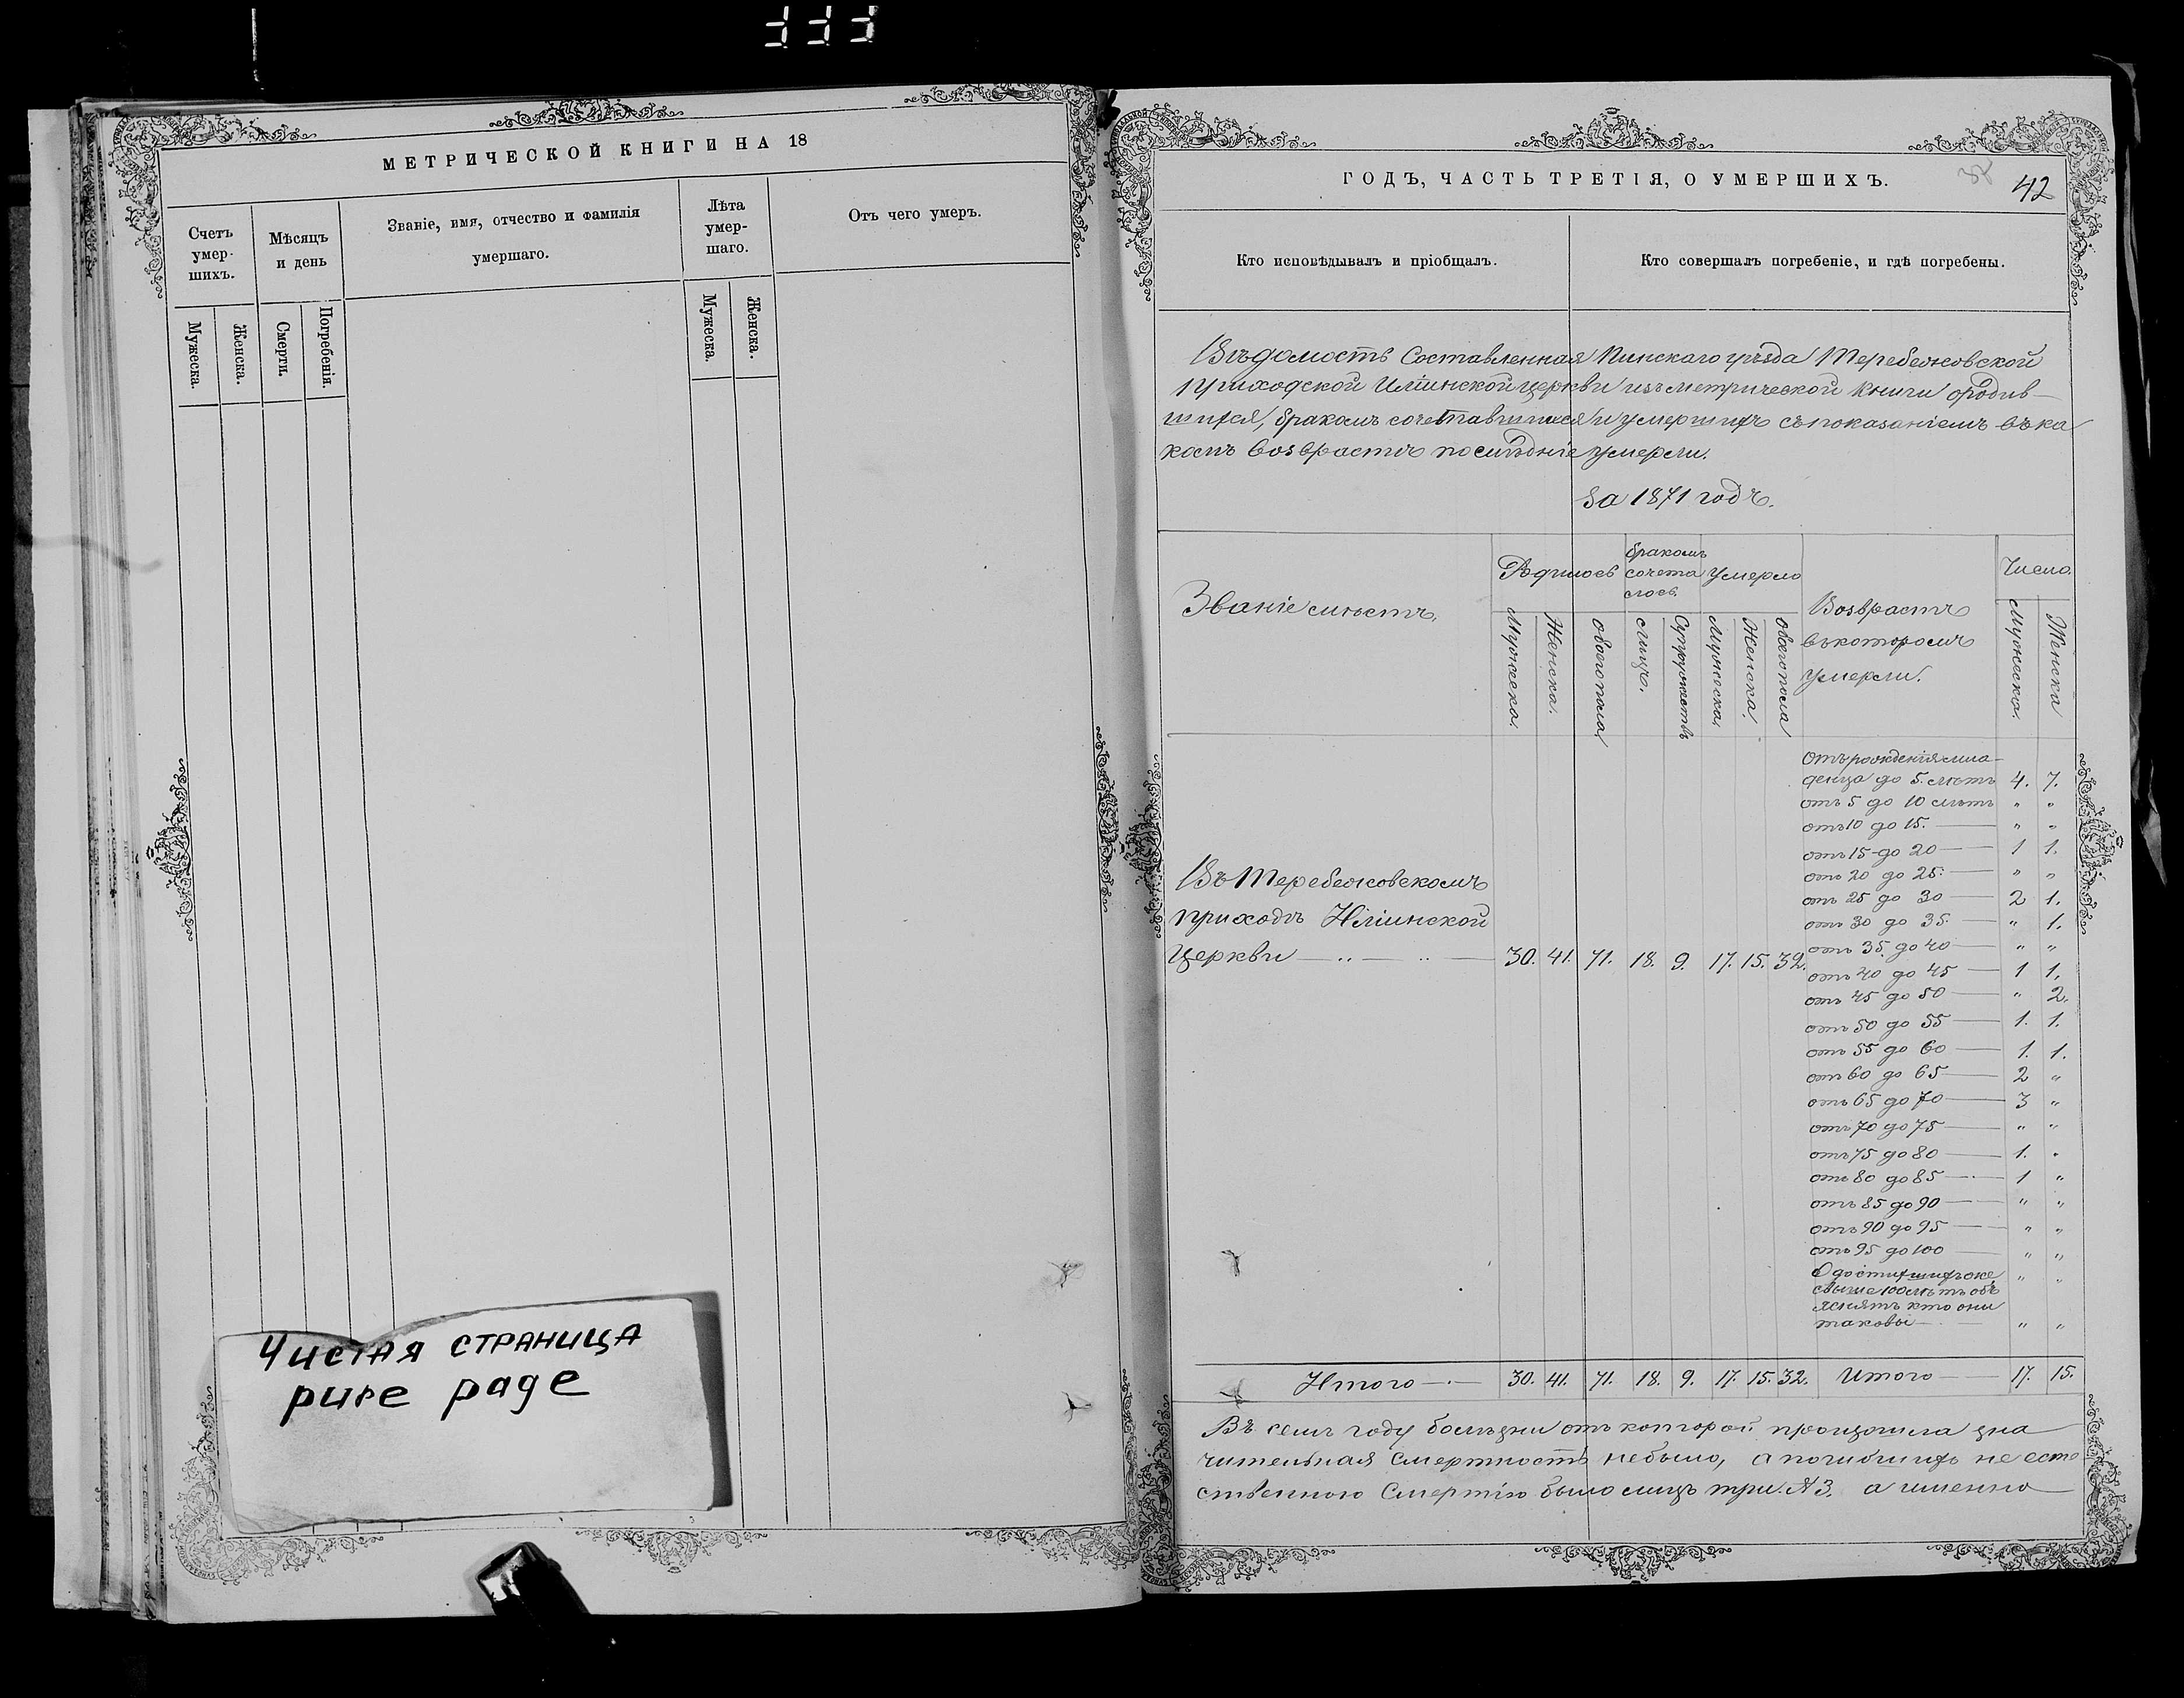 МЕТРИЧЕСКОЙ КНИГИ НА 18
Счетъ умер-шихъ.
Мѣсяцъ и день
Званіе, имя, отчество и фамилія умершаго.
Лѣта умер-шаго.
Отъ чего умеръ.
Мужеска.
Женска.
Смерти.
Погребенія.
Мужеска.
Женска.
Чистая страница
pure page
ГОДЪ, ЧАСТЬ ТРЕТІЯ, О УМЕРШИХЪ.
42
Кто исповѣдывалъ и пріобщалъ.
Кто совершалъ погребеніе, и гдѣ погребены.
Вѣдомость Составленная Пинскаго уѣзда Теребежовской
приходской Иліинской церкви изъ метрической книги ородив-
шихся, бракомъ сочетавшихся и умершихъ съ показаніемъ въ ка
комъ возврастѣ послѣдніе умерли.
За 1871 годъ.
Званіе мѣстъ.
Родилось
бракомъ сочета лось
Умерло
Возврастъ въ которомъ умерли.
Число.
Мужеска.
Женска.
обоего пола
лицъ.
Супружествъ
Мужеска
Женска.
обоего пола
Мужеска.
Женска
Въ Теребежовскомъ
приходѣ Иліинской
Церкви 30. 41. 71. 18. 9. 17. 15. 32.
Отъ рожденія мла-
денца до 5. лѣтъ 4. 7.
отъ 5 до 10 лѣтъ " "
отъ 10 до 15. — " "
отъ 15 до 20 — 1 1.
отъ 20 до 25. — " "
отъ 25 до 30 — 2 1.
отъ 30 до 35. — " 1.
отъ 35. до 40 — " "
отъ 40 до 45 — 1 1.
отъ 45 до 50 — " 2.
отъ 50 до 55 — 1. 1.
отъ 55 до 60 — 1. 1.
отъ 60 до 65 — 2 "
отъ 65 до 70 — 3 "
отъ 70 до 75 — " "
отъ 75 до 80 — 1. "
отъ 80 до 85 — 1 "
отъ 85 до 90 — " "
отъ 90 до 95 — " "
отъ 95 до 100 — " "
О достигшихъ же " "
свыше 100 лѣтъ объ
яснять кто они
таковы — " "
Итого — 30. 41. 71. 18. 9. 17. 15. 32. Итого — 17. 15.
Въ семъ году болѣзни отъ которой произошла зна
чительная Смертность небыло, а погибшихъ не есте
ственною Смертію было лицъ три. № 3. а именно